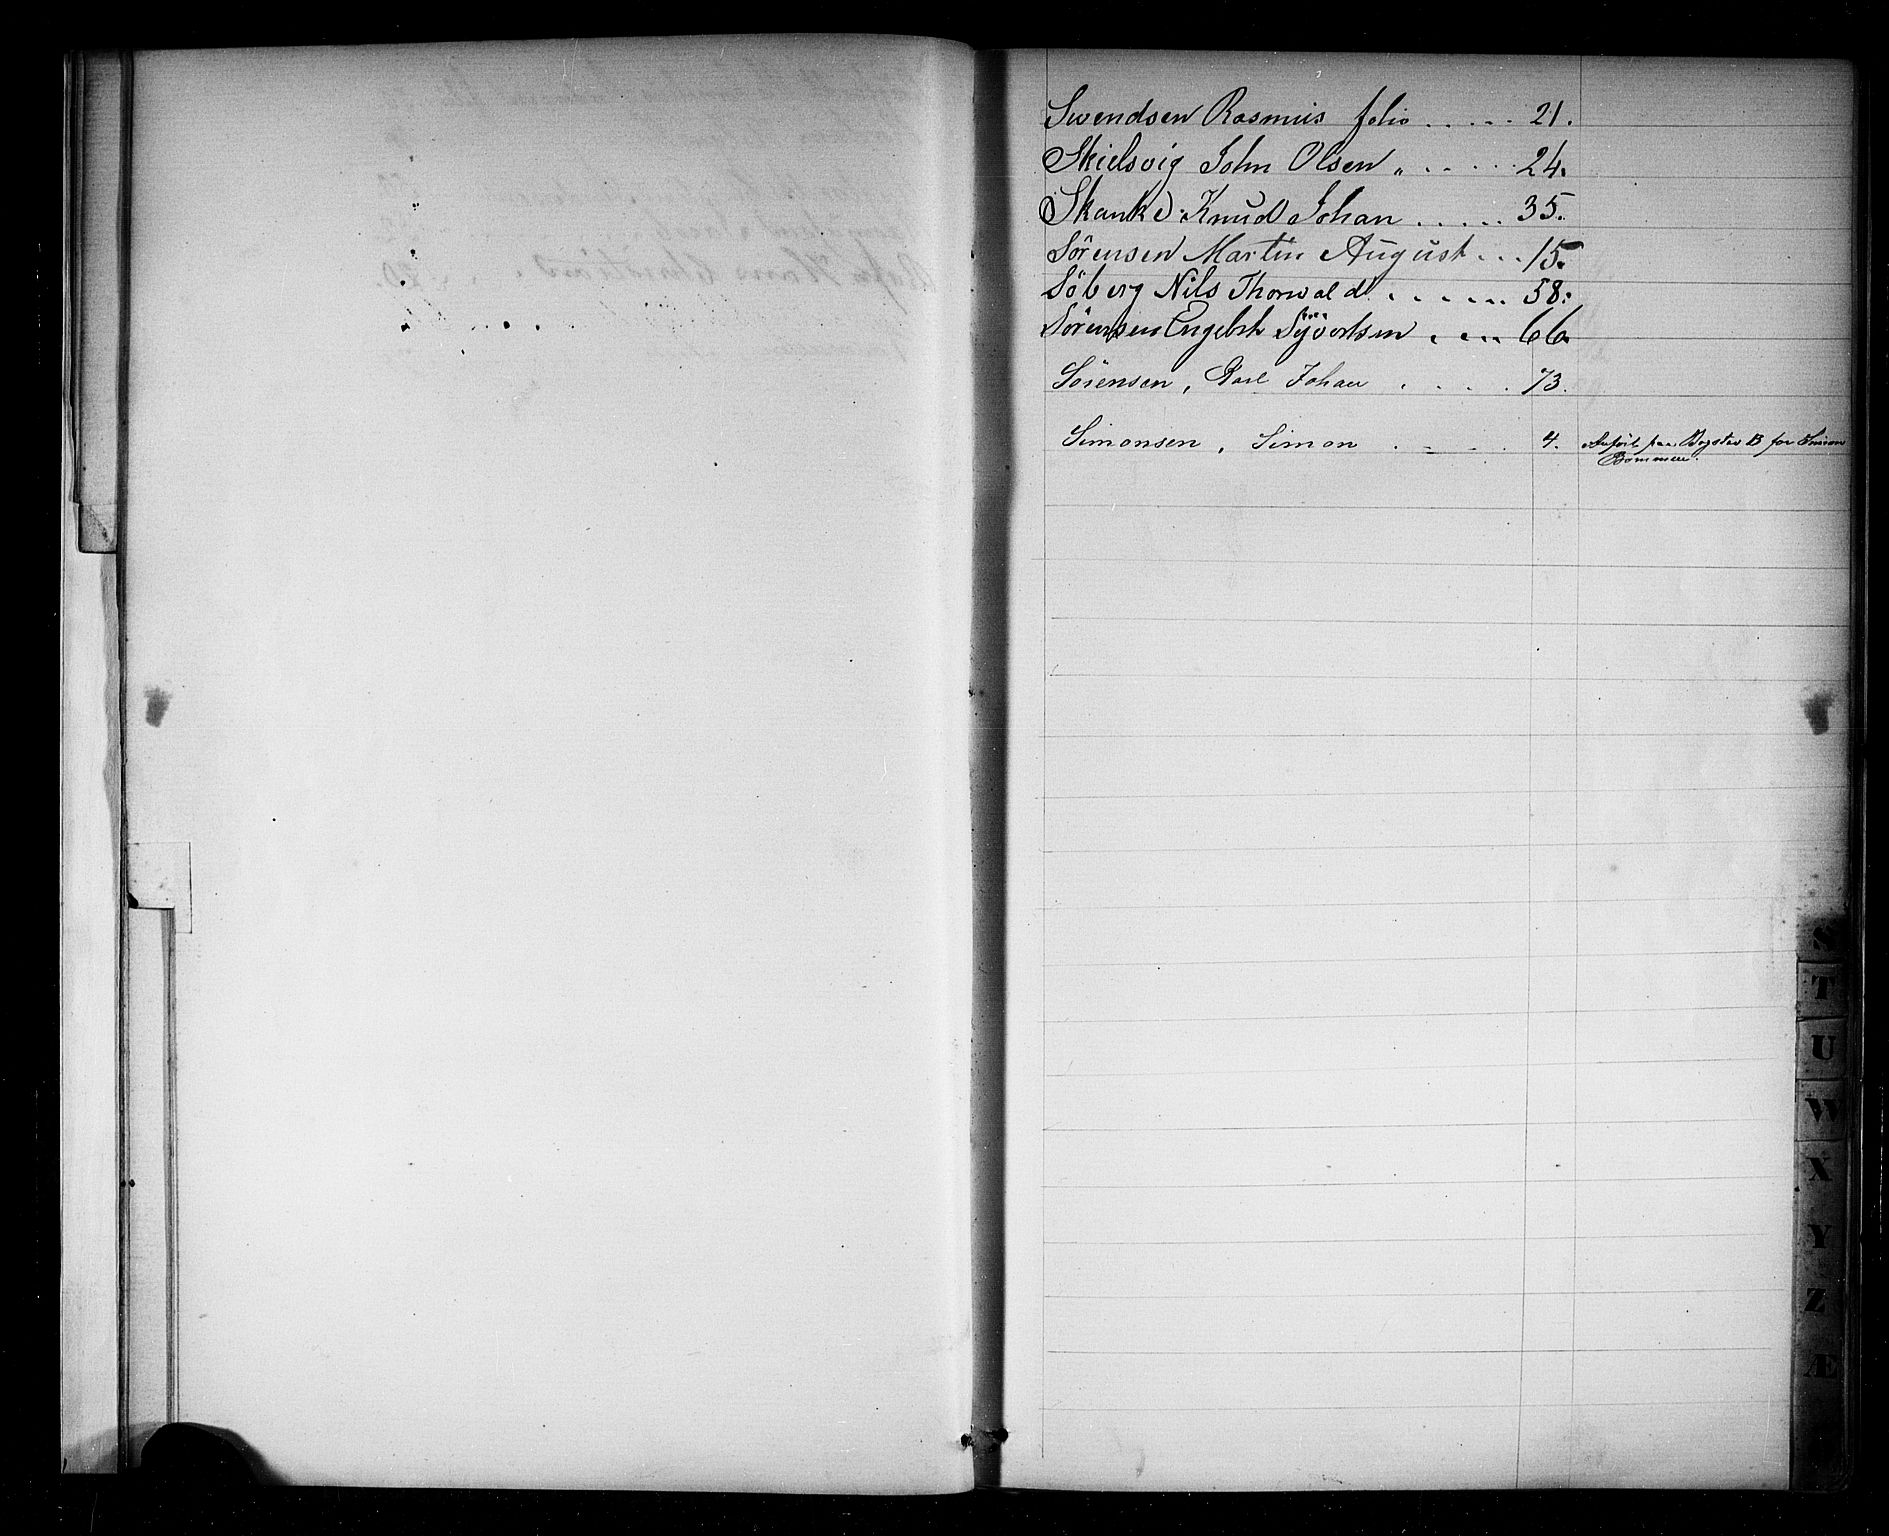 Swendsen Rasmus folio ..... 21.
Skielsvig John Olsen " .... 24.
Skanke Knud Johan ..... 35.
Sörensen Martin August ... 15.
Söberg Nils Thorwald ...... 58.
Sörensen Engebrt Syvertsen .... 66.
Sörensen, Carl Johan .... 73.
Simonsen, Simon .... 4. Anført paa Bogstav B for Simon
Bommen.
S
T
U
W
X
Y
Z
Æ